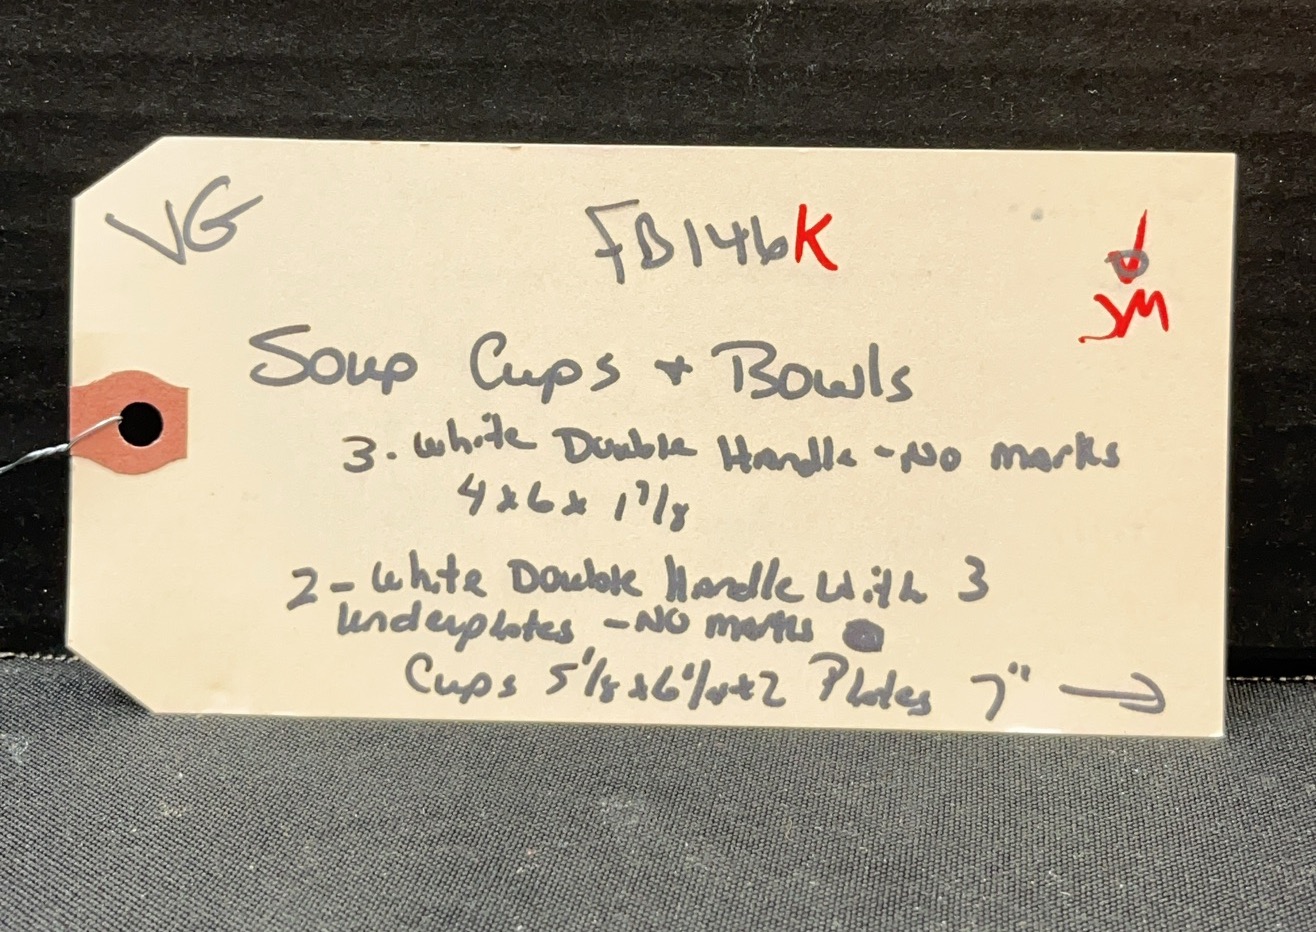 VG
FB146K
JM
Soup Cups + Bowls
3. White Double Handle - No marks
4 x 6 x 1 7/8
2 - White Double Handle With 3
Underplates - No marks
Cups 5 1/8 x 6 1/4 x 2 Plates 7" →